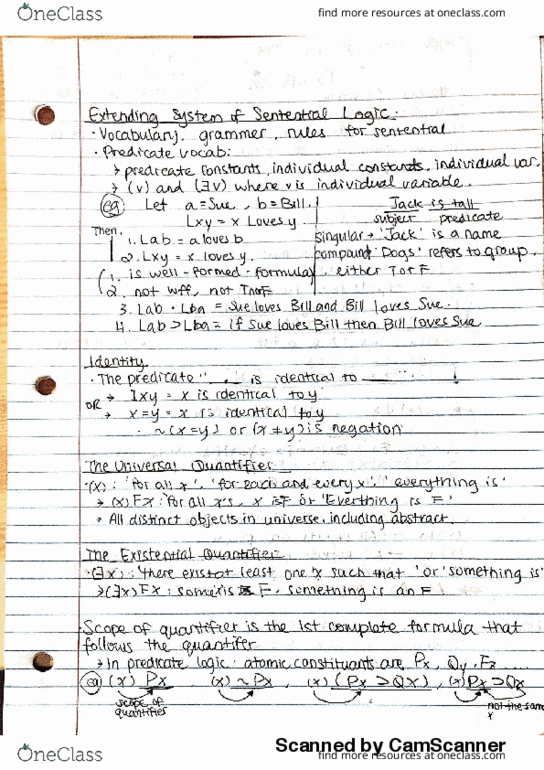 OneClass
find more resources at oneclass.com
Extending System of Sentential Logic:
· Vocabulary, grammer, rules for sentential
· Predicate vocab:
> predicate constants, individual constants, individual var.
> (v) and (∃v) where v is individual variable.
eg Let a = Sue, b = Bill.
Lxy = x Loves y.
Then,
1. Lab = a loves b
2. Lxy = x loves y.
(1. is well-formed-formula, either T or F
2. not wff, not T nor F
Jack is tall
subject predicate
singular → 'Jack' is a name
compound 'Dogs' refers to group.
3. Lab · Lba = Sue loves Bill and Bill loves Sue.
4. Lab ⊃ Lba = if Sue loves Bill then Bill loves Sue
Identity
· The predicate "__ is identical to __"
OR → Ixy = x is identical to y
→ x=y = x is identical to y
· ~(x=y) or (x≠y) is negation
The Universal Quantifier
· (x) : 'for all x', 'for each and every x', 'everything is'
→ (x) Fx : 'for all x's, x is F' or 'Everthing is F'
> All distinct objects in universe, including abstract.
The Existential Quantifier
· (∃x) : 'there exist at least one x such that' or 'something is'
> (∃x) Fx : some x is F, something is an F
· Scope of quantifier is the 1st complete formula that
follows the quantifer
> In predicate logic · atomic constituants are, Px, Qy, Fz...
eg (x) Px , (x) ~Px , (x) (Px ⊃ Qx) , (x) Px ⊃ Qx
scope of quantifier
not the same x
Scanned by CamScanner
OneClass
find more resources at oneclass.com